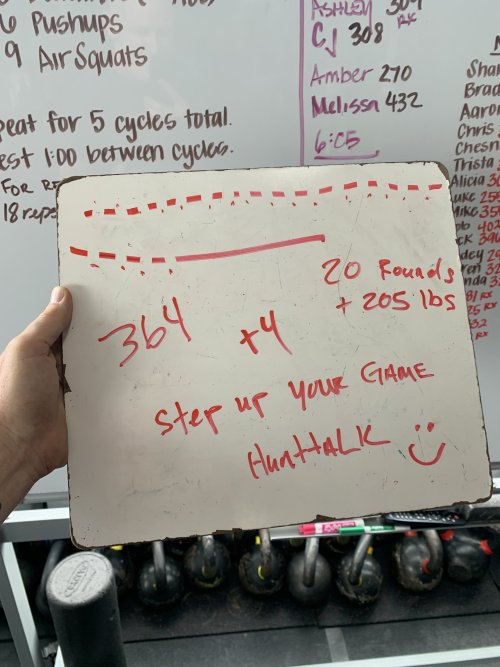 6 Pushups
9 Air Squats
peat for 5 cycles total.
est 1:00 between cycles.
FOR
18 reps
ASHLEY 309
RX
CJ 308
Amber 270
Melissa 432
6:05
Shar
Brad
Aaron
Chris
Chesn
Trista
Alicia
20 Rounds
+ 205 lbs
364 +4
Step up your GAME
HuntTALK